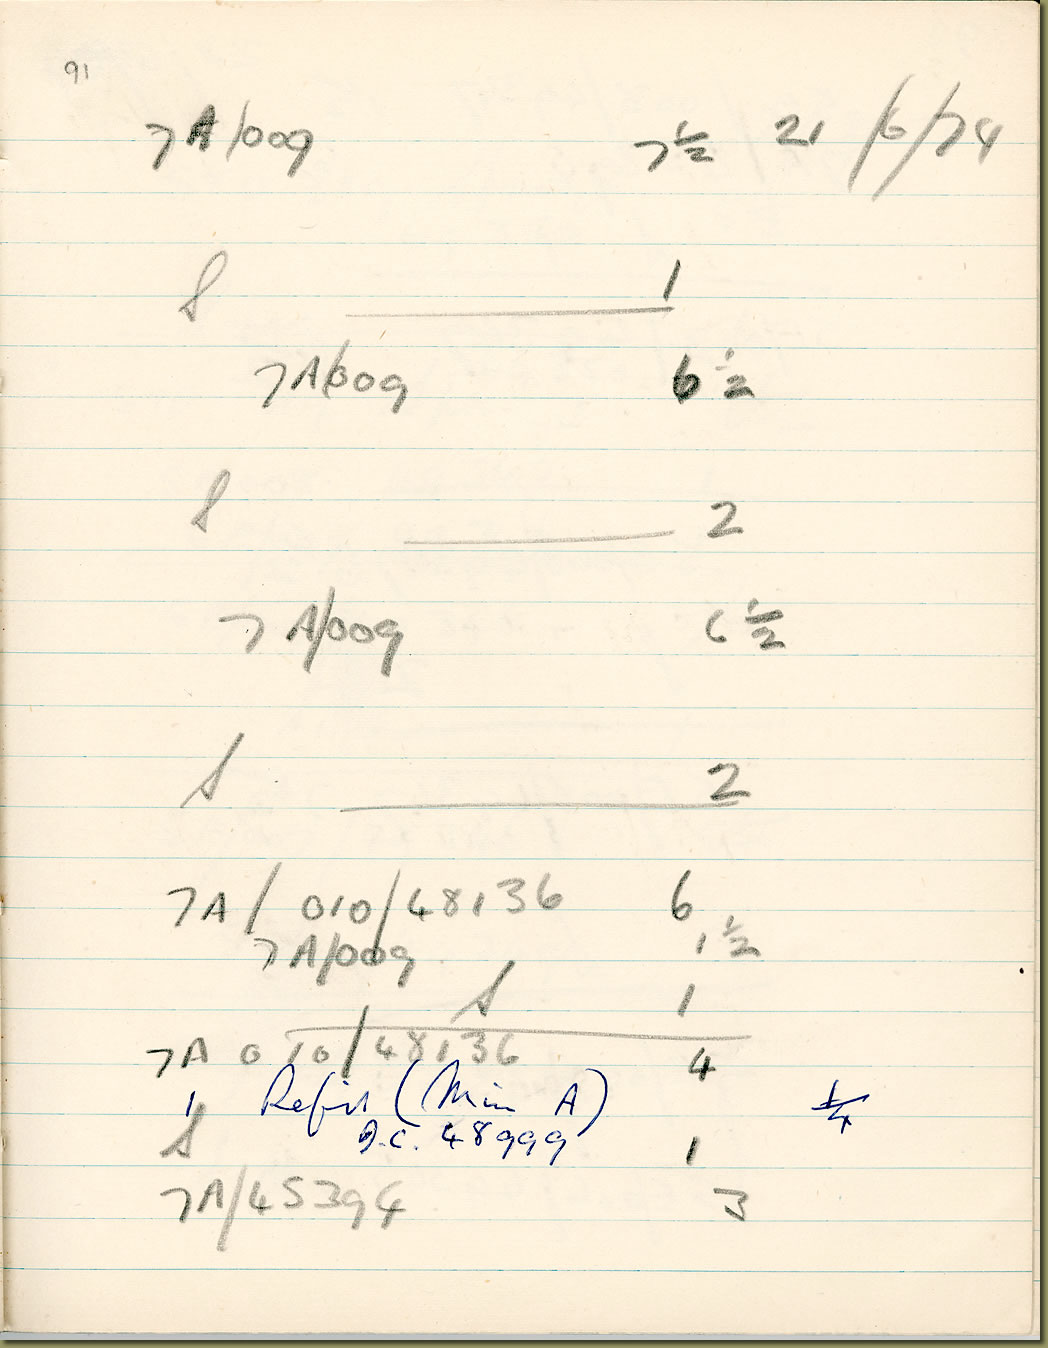 91
7A/009 7 1/2 21/6/74
S 1
7A/009 6 1/2
S 2
7A/009 6 1/2
S 2
7A/010/48136 6
7A/009 1 1/2
S 1
7A 010/48136 4
1 (Min A) 1/4
D.C. 48999
S 1
7A/45394 3